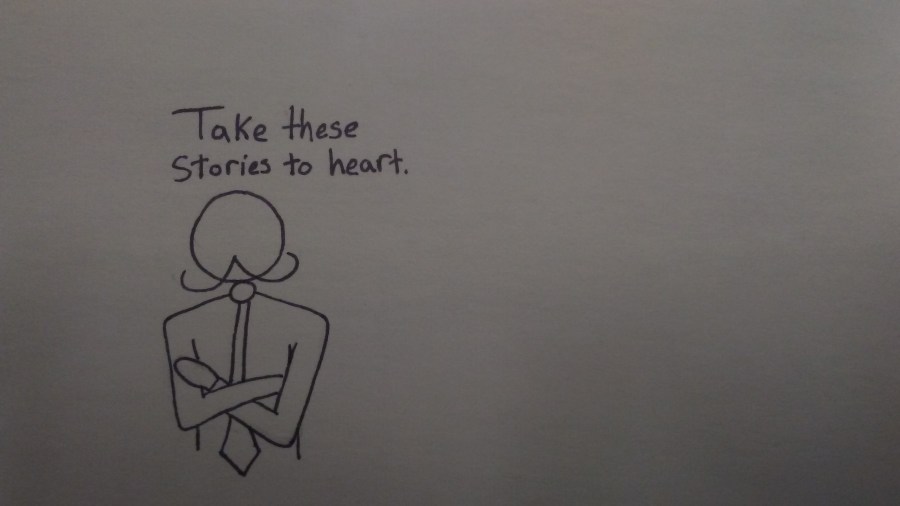 Take these
Stories to heart.